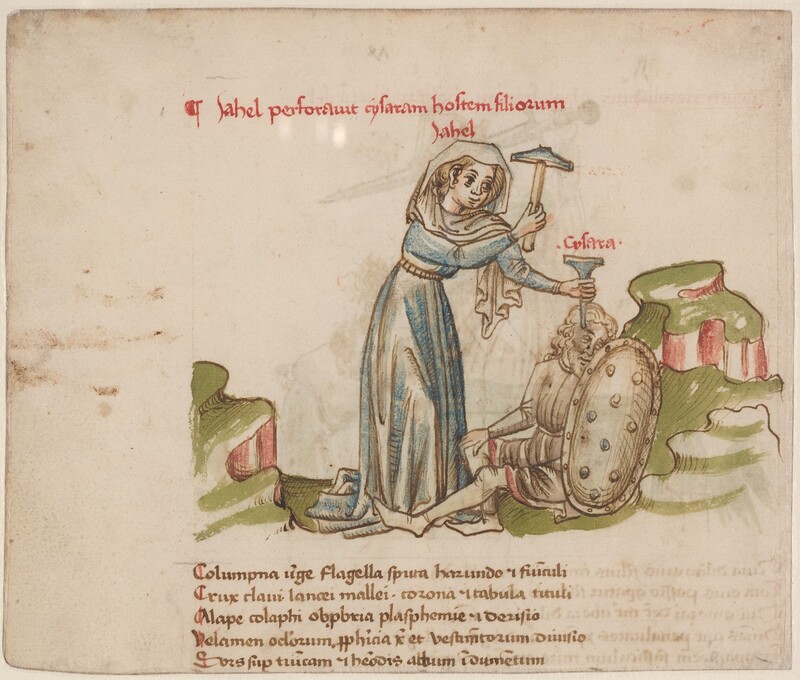 ¶ Jahel perforauit cysaram hostem filiorum
Jahel
Cysara
Columpna uirge flagella sputa harundo ⁊ funiculi
Crux claui lancea mallei · corona et tabula tituli
Alape colaphi obprobria plasphemie ⁊ derisio
Velamen oclorum et vestimentorum diuisio
Sors sup tunicam ⁊ herodis album indumentum